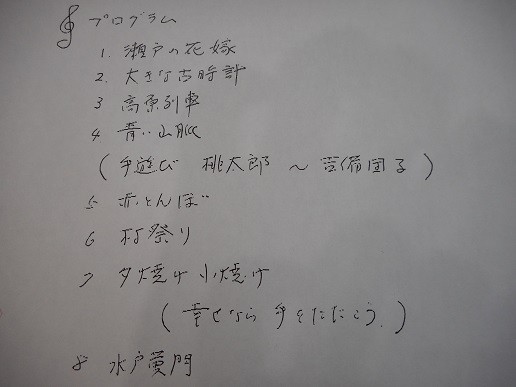 プログラム
1. 瀬戸の花嫁
2. 大きな古時計
3 高原列車
4 青い山脈
(手遊び 桃太郎 〜 吉備団子)
5 赤とんぼ
6 村祭り
7 夕焼け小焼け
(幸せなら 手をたたこう。)
8 水戸黄門